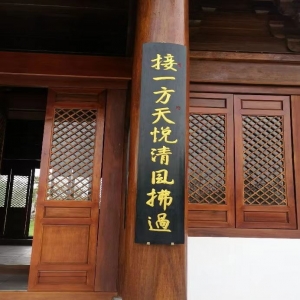 接一方天悦清风拂過